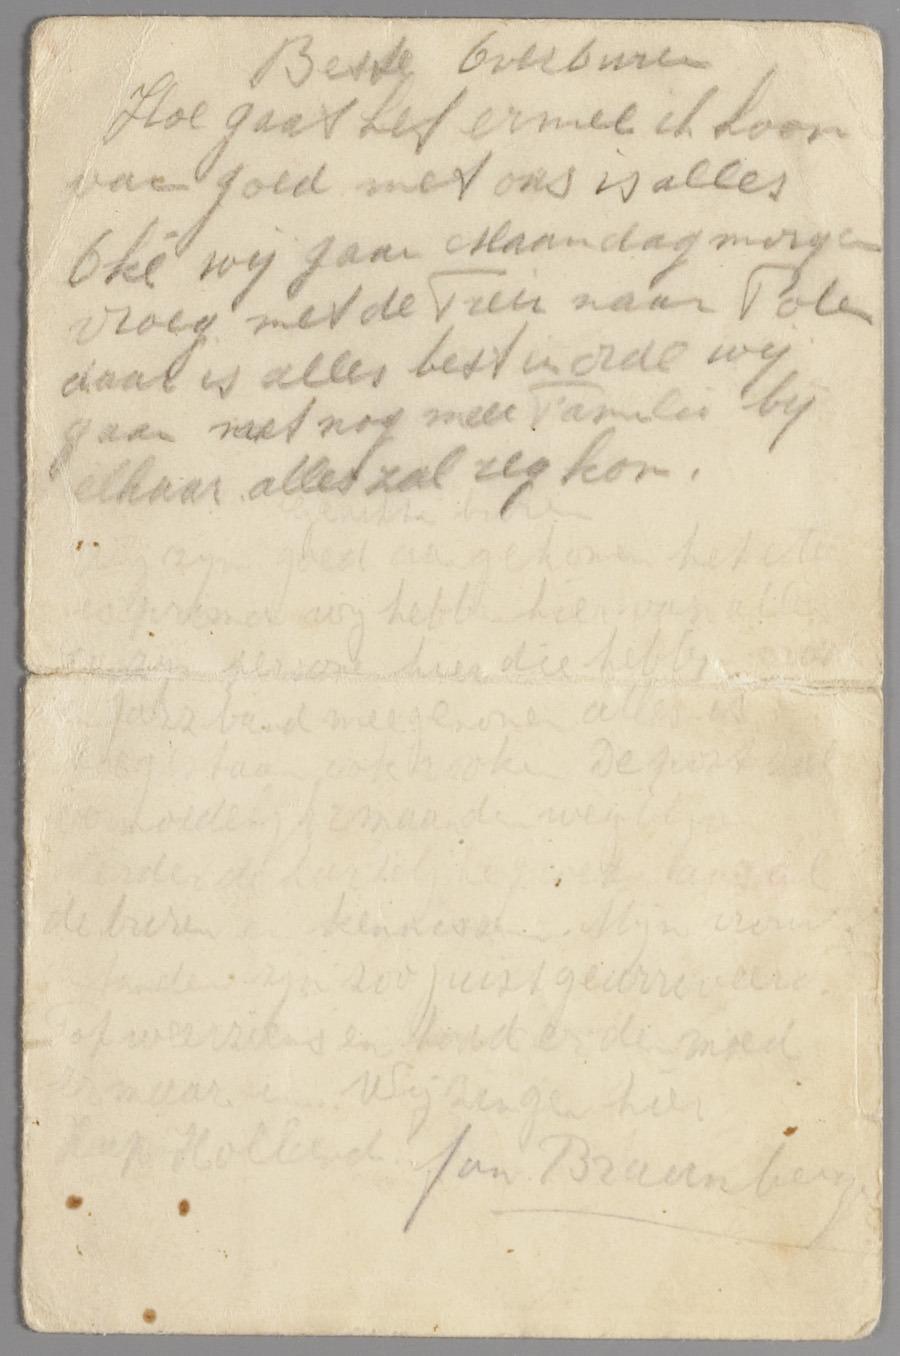 Beste Overburen
Hoe gaat het ermee ik hoop
van goed met ons is alles
Oké wij gaan Maandagmorgen
vroeg met de Trein naar Polen
daar is alles best in orde wij
gaan met nog meer Familie bij
elkaar alles zal reg kom.
buren
Wij zijn goed aangekomen het eten
is prima wij hebben hier van alles
er zijn persone hier die hebben
Jazz band meegenomen alles is
toegestaan ook rooken De post zal
vermoedelijk 2 maanden weg blijven
verder de hartelijke groeten aan al
de buren en kennissen. Mijn vrouw
zijn zoo juist gearriveerd.
Tot weerziens en houd er de moed
er maar in. Wij zingen hier
Hup Holland. Jan Braunberg